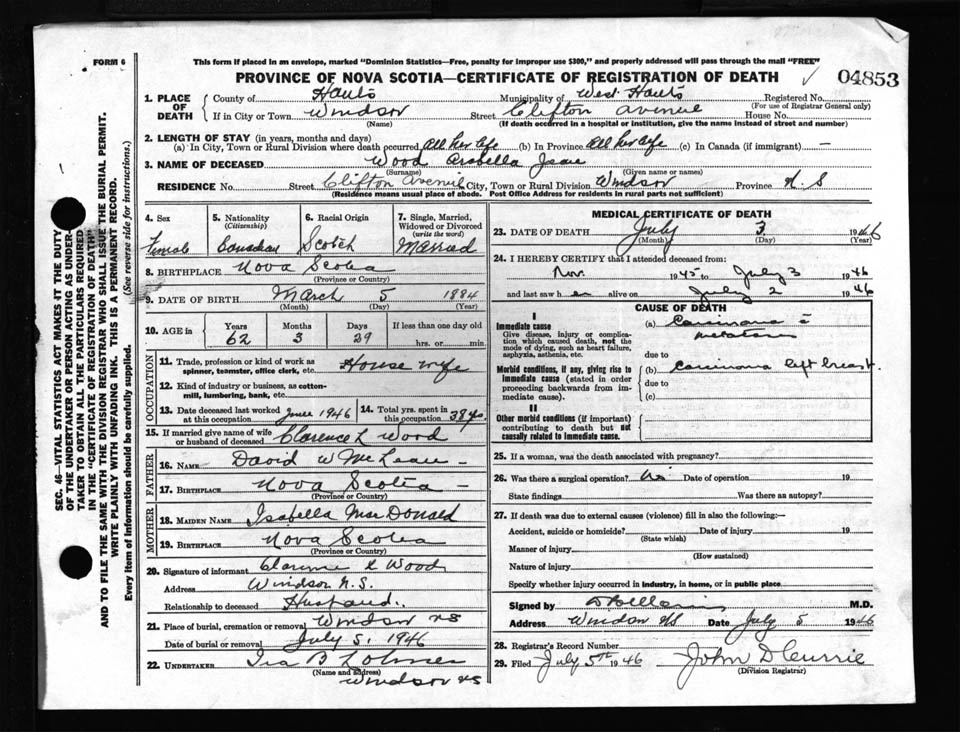 FORM 6
This form if placed in an envelope, marked "Dominion Statistics—Free, penalty for improper use $300," and properly addressed will pass through the mail "FREE"
PROVINCE OF NOVA SCOTIA—CERTIFICATE OF REGISTRATION OF DEATH
04853
1. PLACE OF DEATH
County of Hants Municipality of West Hants Registered No.
(For use of Registrar General only)
If in City or Town Windsor Street Clifton Avenue House No.
(Name) (If death occurred in a hospital or institution, give the name instead of street and number)
2. LENGTH OF STAY (in years, months and days)
(a) In City, Town or Rural Division where death occurred All her life (b) In Province All her life (c) In Canada (if immigrant) —
3. NAME OF DECEASED Wood Arabella Jean
(Surname) (Given name or names)
RESIDENCE No. Street Clifton Avenue City, Town or Rural Division Windsor Province N. S
(Residence means usual place of abode. Post Office Address for residents in rural parts not sufficient)
SEC. 46—VITAL STATISTICS ACT MAKES IT THE DUTY
OF THE UNDERTAKER OR PERSON ACTING AS UNDER-
TAKER TO OBTAIN ALL THE PARTICULARS REQUIRED
IN THE "CERTIFICATE OF REGISTRATION OF DEATH"
AND TO FILE THE SAME WITH THE DIVISION REGISTRAR WHO SHALL ISSUE THE BURIAL PERMIT.
WRITE PLAINLY WITH UNFADING INK. THIS IS A PERMANENT RECORD.
Every item of information should be carefully supplied. (See reverse side for instructions.)
4. Sex
Female
5. Nationality
(Citizenship)
Canadian
6. Racial Origin
Scotch
7. Single, Married,
Widowed or Divorced
(write the word)
Married
8. BIRTHPLACE Nova Scotia
(Province or Country)
9. DATE OF BIRTH March 5 1884
(Month) (Day) (Year)
10. AGE in
Years Months Days If less than one day old
62 3 29 hrs. or min.
OCCUPATION
11. Trade, profession or kind of work as
spinner, teamster, office clerk, etc. House wife
12. Kind of industry or business, as cotton-
mill, lumbering, bank, etc.
13. Date deceased last worked
at this occupation June 1946
14. Total yrs. spent in
this occupation 38 yrs.
15. If married give name of wife
or husband of deceased Clarence L Wood
FATHER
16. NAME David W McLean —
17. BIRTHPLACE Nova Scotia —
(Province or Country)
MOTHER
18. MAIDEN NAME Isabella MacDonald
19. BIRTHPLACE Nova Scotia
(Province or Country)
20. Signature of informant Clarence L Wood
Address Windsor N.S.
Relationship to deceased Husband.
21. Place of burial, cremation or removal Windsor NS
Date of burial or removal July 5, 1946
22. UNDERTAKER Ira B
(Name and address)
Windsor NS
MEDICAL CERTIFICATE OF DEATH
23. DATE OF DEATH July 3 1946
(Month) (Day) (Year)
24. I HEREBY CERTIFY that I attended deceased from:
Nov. 1945 to July 3 1946
and last saw her alive on July 2 1946
CAUSE OF DEATH
I
Immediate cause
Give disease, injury or complica-
tion which caused death, not the
mode of dying, such as heart failure,
asphyxia, asthenia, etc.
(a) Carcinoma
due to
Morbid conditions, if any, giving rise to
immediate cause (stated in order
proceeding backwards from im-
mediate cause).
(b) Carcinoma left breast.
due to
(c)
II
Other morbid conditions (if important)
contributing to death but not
causally related to immediate cause.
25. If a woman, was the death associated with pregnancy?
26. Was there a surgical operation? Date of operation 19
State findings Was there an autopsy?
27. If death was due to external causes (violence) fill in also the following:—
Accident, suicide or homicide? Date of injury 19
(State which)
Manner of injury
(How sustained)
Nature of injury
Specify whether injury occurred in industry, in home, or in public place
Signed by M.D.
Address Windsor NS Date July 5 1946
28. Registrar's Record Number
29. Filed July 5th 1946 John D Currie
(Division Registrar)